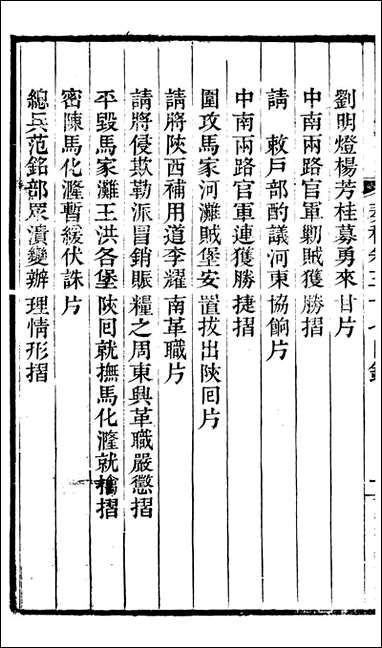 劉明燈楊芳桂募勇來甘片
中南兩路官軍勦賊獲勝摺
請　敕戶部酌議河東協餉片
中南兩路官軍連獲勝捷摺
圍攻馬家河灘賊堡安置拔出陝回片
請將陝西補用道李耀南革職片
請將侵欺勒派冒銷賑糧之周東興革職嚴懲摺
平毀馬家灘王洪各堡陝回就撫馬化漋就擒摺
密陳馬化漋暫緩伏誅片
總兵范銘部眾潰變辦理情形摺